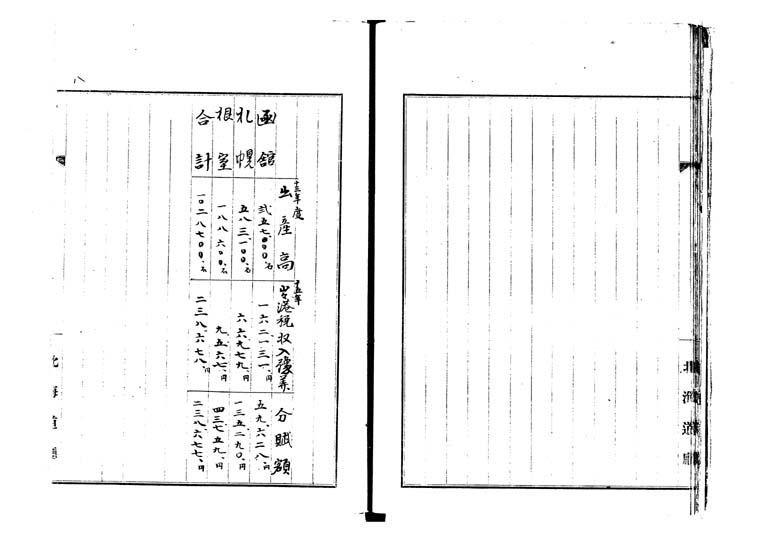 十三年度 出産高 十五年 出港税収入豫算 分賦額
函館 弐五七、〇〇〇、石 一六二、一三一、円 五九、六二八、円
札幌 五八三、一〇〇、石 六六、九七九、円 一三五、二九〇、円
根室 一八八、六〇〇、石 九、五六七、円 四三、七五九、円
合計 一〇二八、七〇〇、石 二三八、六七八、円 二三八、六七七、円
北海道廳